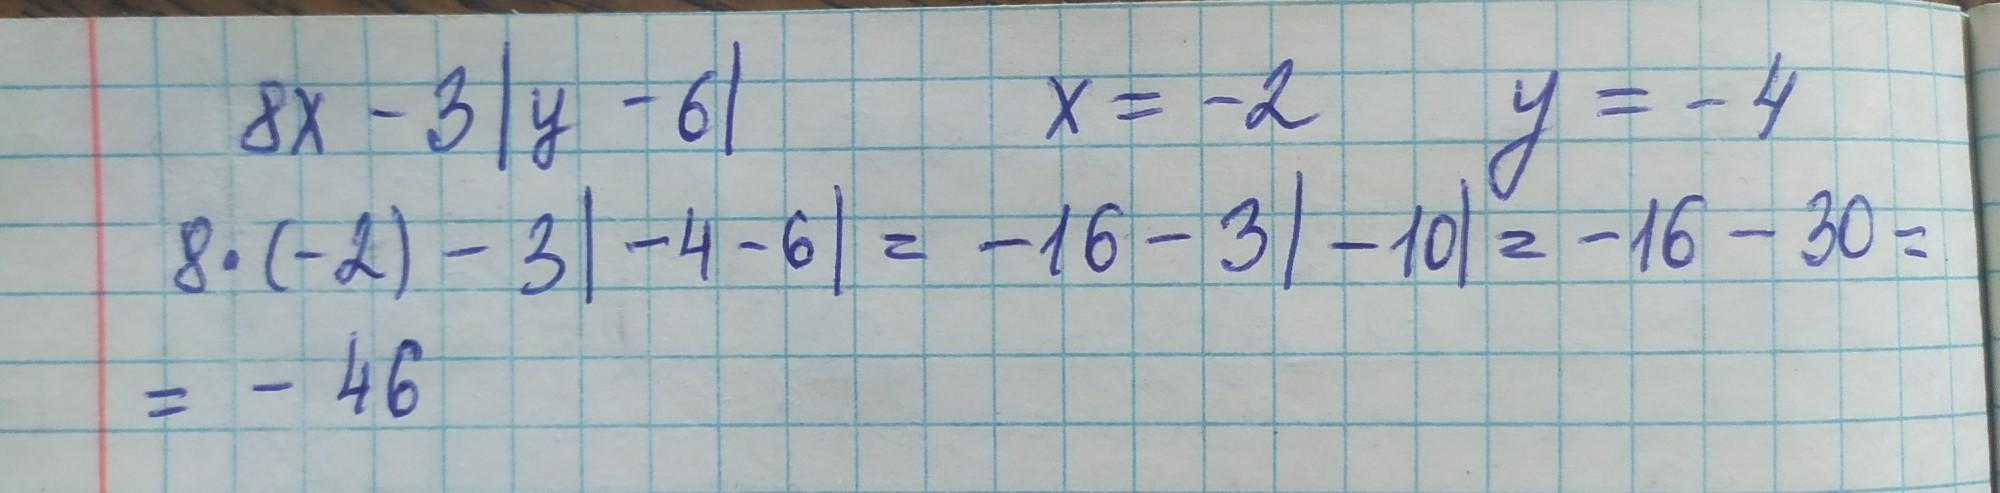 8x - 3|y - 6| x = -2 y = -4
8·(-2) - 3|-4-6| = -16 - 3|-10| = -16 - 30 =
= - 46